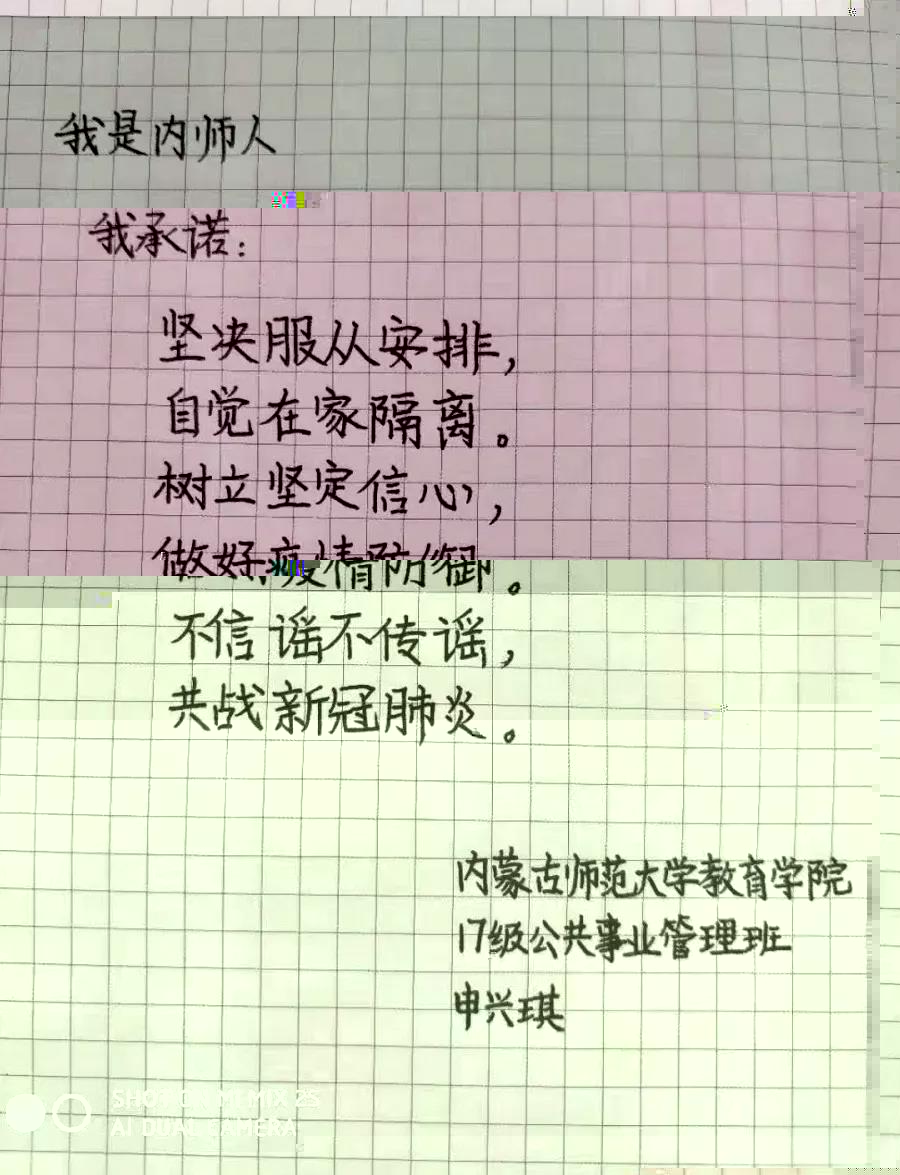 我是内师人
我承诺：
坚决服从安排，
自觉在家隔离。
树立坚定信心，
做好疫情防御。
不信谣不传谣，
共战新冠肺炎。
内蒙古师范大学教育学院
17级公共事业管理班
申兴琪
SHOT ON MI MIX 2S
AI DUAL CAMERA